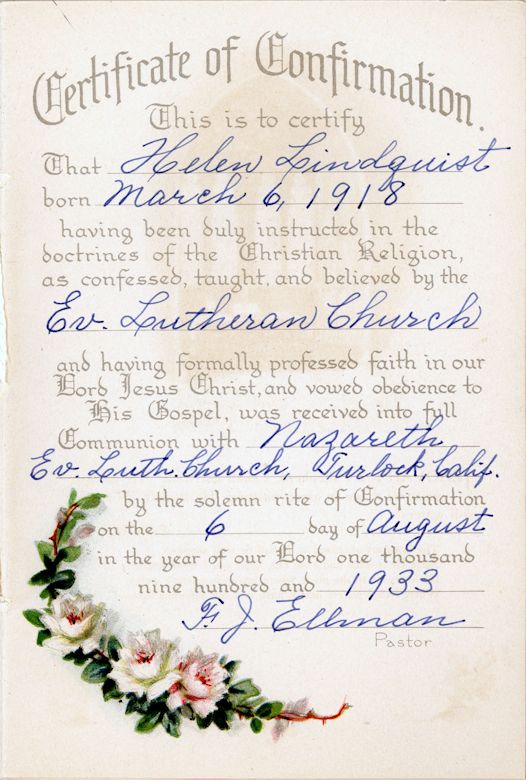 Certificate of Confirmation.
This is to certify
That Helen Lindquist
born March 6, 1918
having been duly instructed in the
doctrines of the Christian Religion,
as confessed, taught, and believed by the
Ev. Lutheran Church
and having formally professed faith in our
Lord Jesus Christ, and vowed obedience to
His Gospel, was received into full
Communion with Nazareth
Ev. Luth. Church, Turlock, Calif.
by the solemn rite of Confirmation
on the 6 day of August
in the year of our Lord one thousand
nine hundred and 1933
F. J. Ellman
Pastor